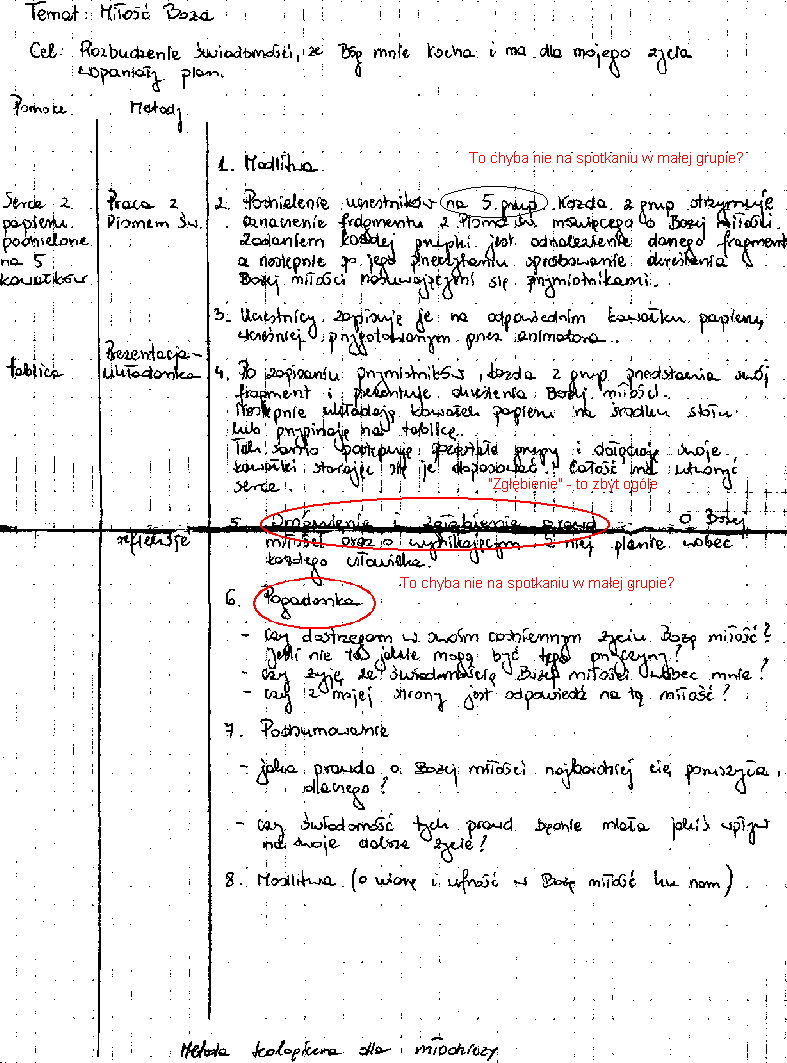 Temat: Miłość Boża
Cel: Rozbudzenie świadomości, że Bóg mnie kocha i ma dla mojego życia
wspaniały plan.
Pomoce Metody
1. Modlitwa
To chyba nie na spotkaniu w małej grupie?
Serce z
papieru
podzielone
na 5
kawałków
Praca z
Pismem Św.
2. Podzielenie uczestników na 5 grup. Każda z grup otrzymuje
oznaczenie fragmentu z Pisma Św. mówiącego o Bożej miłości.
Zadaniem każdej grupki jest odnalezienie danego fragmentu
a następnie po jego przeczytaniu spróbowanie określenia
Bożej miłości nasuwającymi się przymiotnikami.
3. Uczestnicy zapisują je na odpowiednim kawałku papieru,
wcześniej przygotowanym przez animatora.
tablica
Prezentacja-
układanka
4. Po zapisaniu przymiotników, każda z grup przedstawia swój
fragment i prezentuje określenia Bożej miłości.
Następnie układają kawałek papieru na środku stołu
lub przypinają na tablicę.
Tak samo postępują pozostałe grupy i dołączają swoje
kawałki starając się je dopasować. Całość ma utworzyć
serce.
"Zgłębienie" - to zbyt ogóle
5. Omówienie i zgłębienie prawd o Bożej
refleksje
miłości oraz o wynikającym z niej planie wobec
każdego człowieka.
To chyba nie na spotkaniu w małej grupie?
6. Pogadanka
- czy dostrzegam w swoim codziennym życiu Bożą miłość?
Jeśli nie to jakie mogą być tego przyczyny?
- czy żyję ze świadomością Bożej miłości wobec mnie?
- czy z mojej strony jest odpowiedź na tę miłość?
7. Podsumowanie
- jaka prawda o Bożej miłości najbardziej cię poruszyła,
dlaczego?
- czy świadomość tych prawd będzie miała jakiś wpływ
na swoje dalsze życie?
8. Modlitwa (o wiarę i ufność w Bożą miłość ku nam)
Metoda teologiczna dla młodzieży